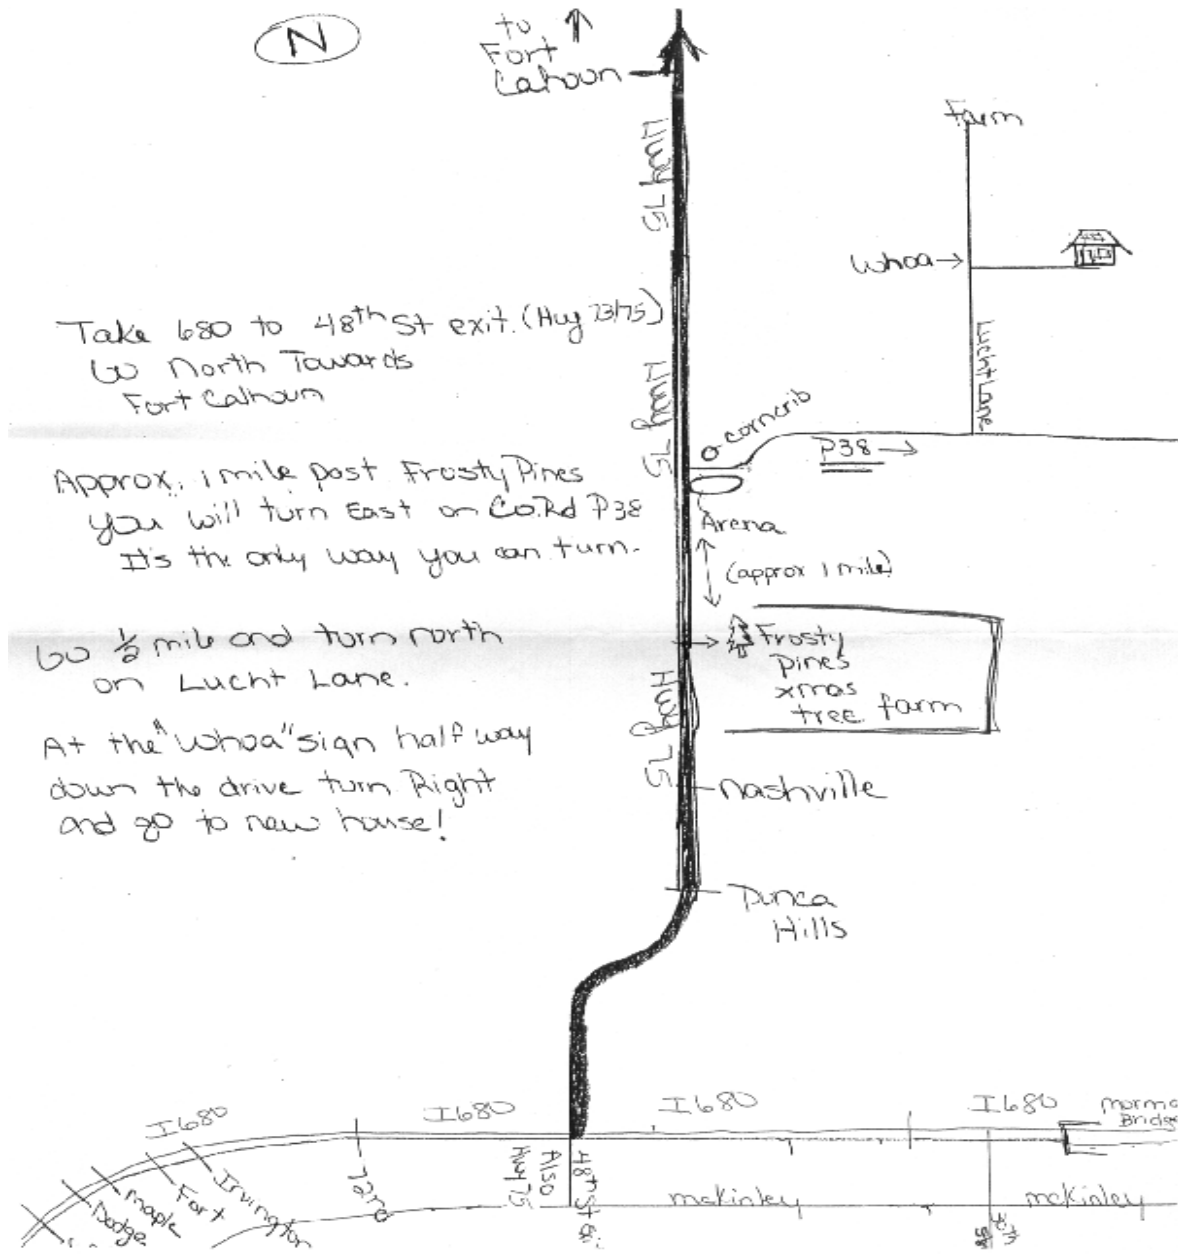 N
to
Fort
Calhoun
Hwy 75
Farm
Whoa
Lucht Lane
Take 680 to 48th St exit. (Hwy 73/75)
Go North Towards
Fort Calhoun
Hwy 75
corncrib
P38
Approx. 1 mile past Frosty Pines
you will turn East on Co.Rd P38
It's the only way you can turn.
Arena
(approx 1 mile)
Go ½ mile and turn north
on Lucht Lane.
Frosty
pines
xmas
tree farm
Hwy 75
At the "Whoa" sign half way
down the drive turn Right
and go to new house!
nashville
Ponca
Hills
I680
I680
I680
I680
Bridge
72nd
Also
Hwy 75
48th St
Irvington
Fort
maple
Dodge
mcKinley
mcKinley